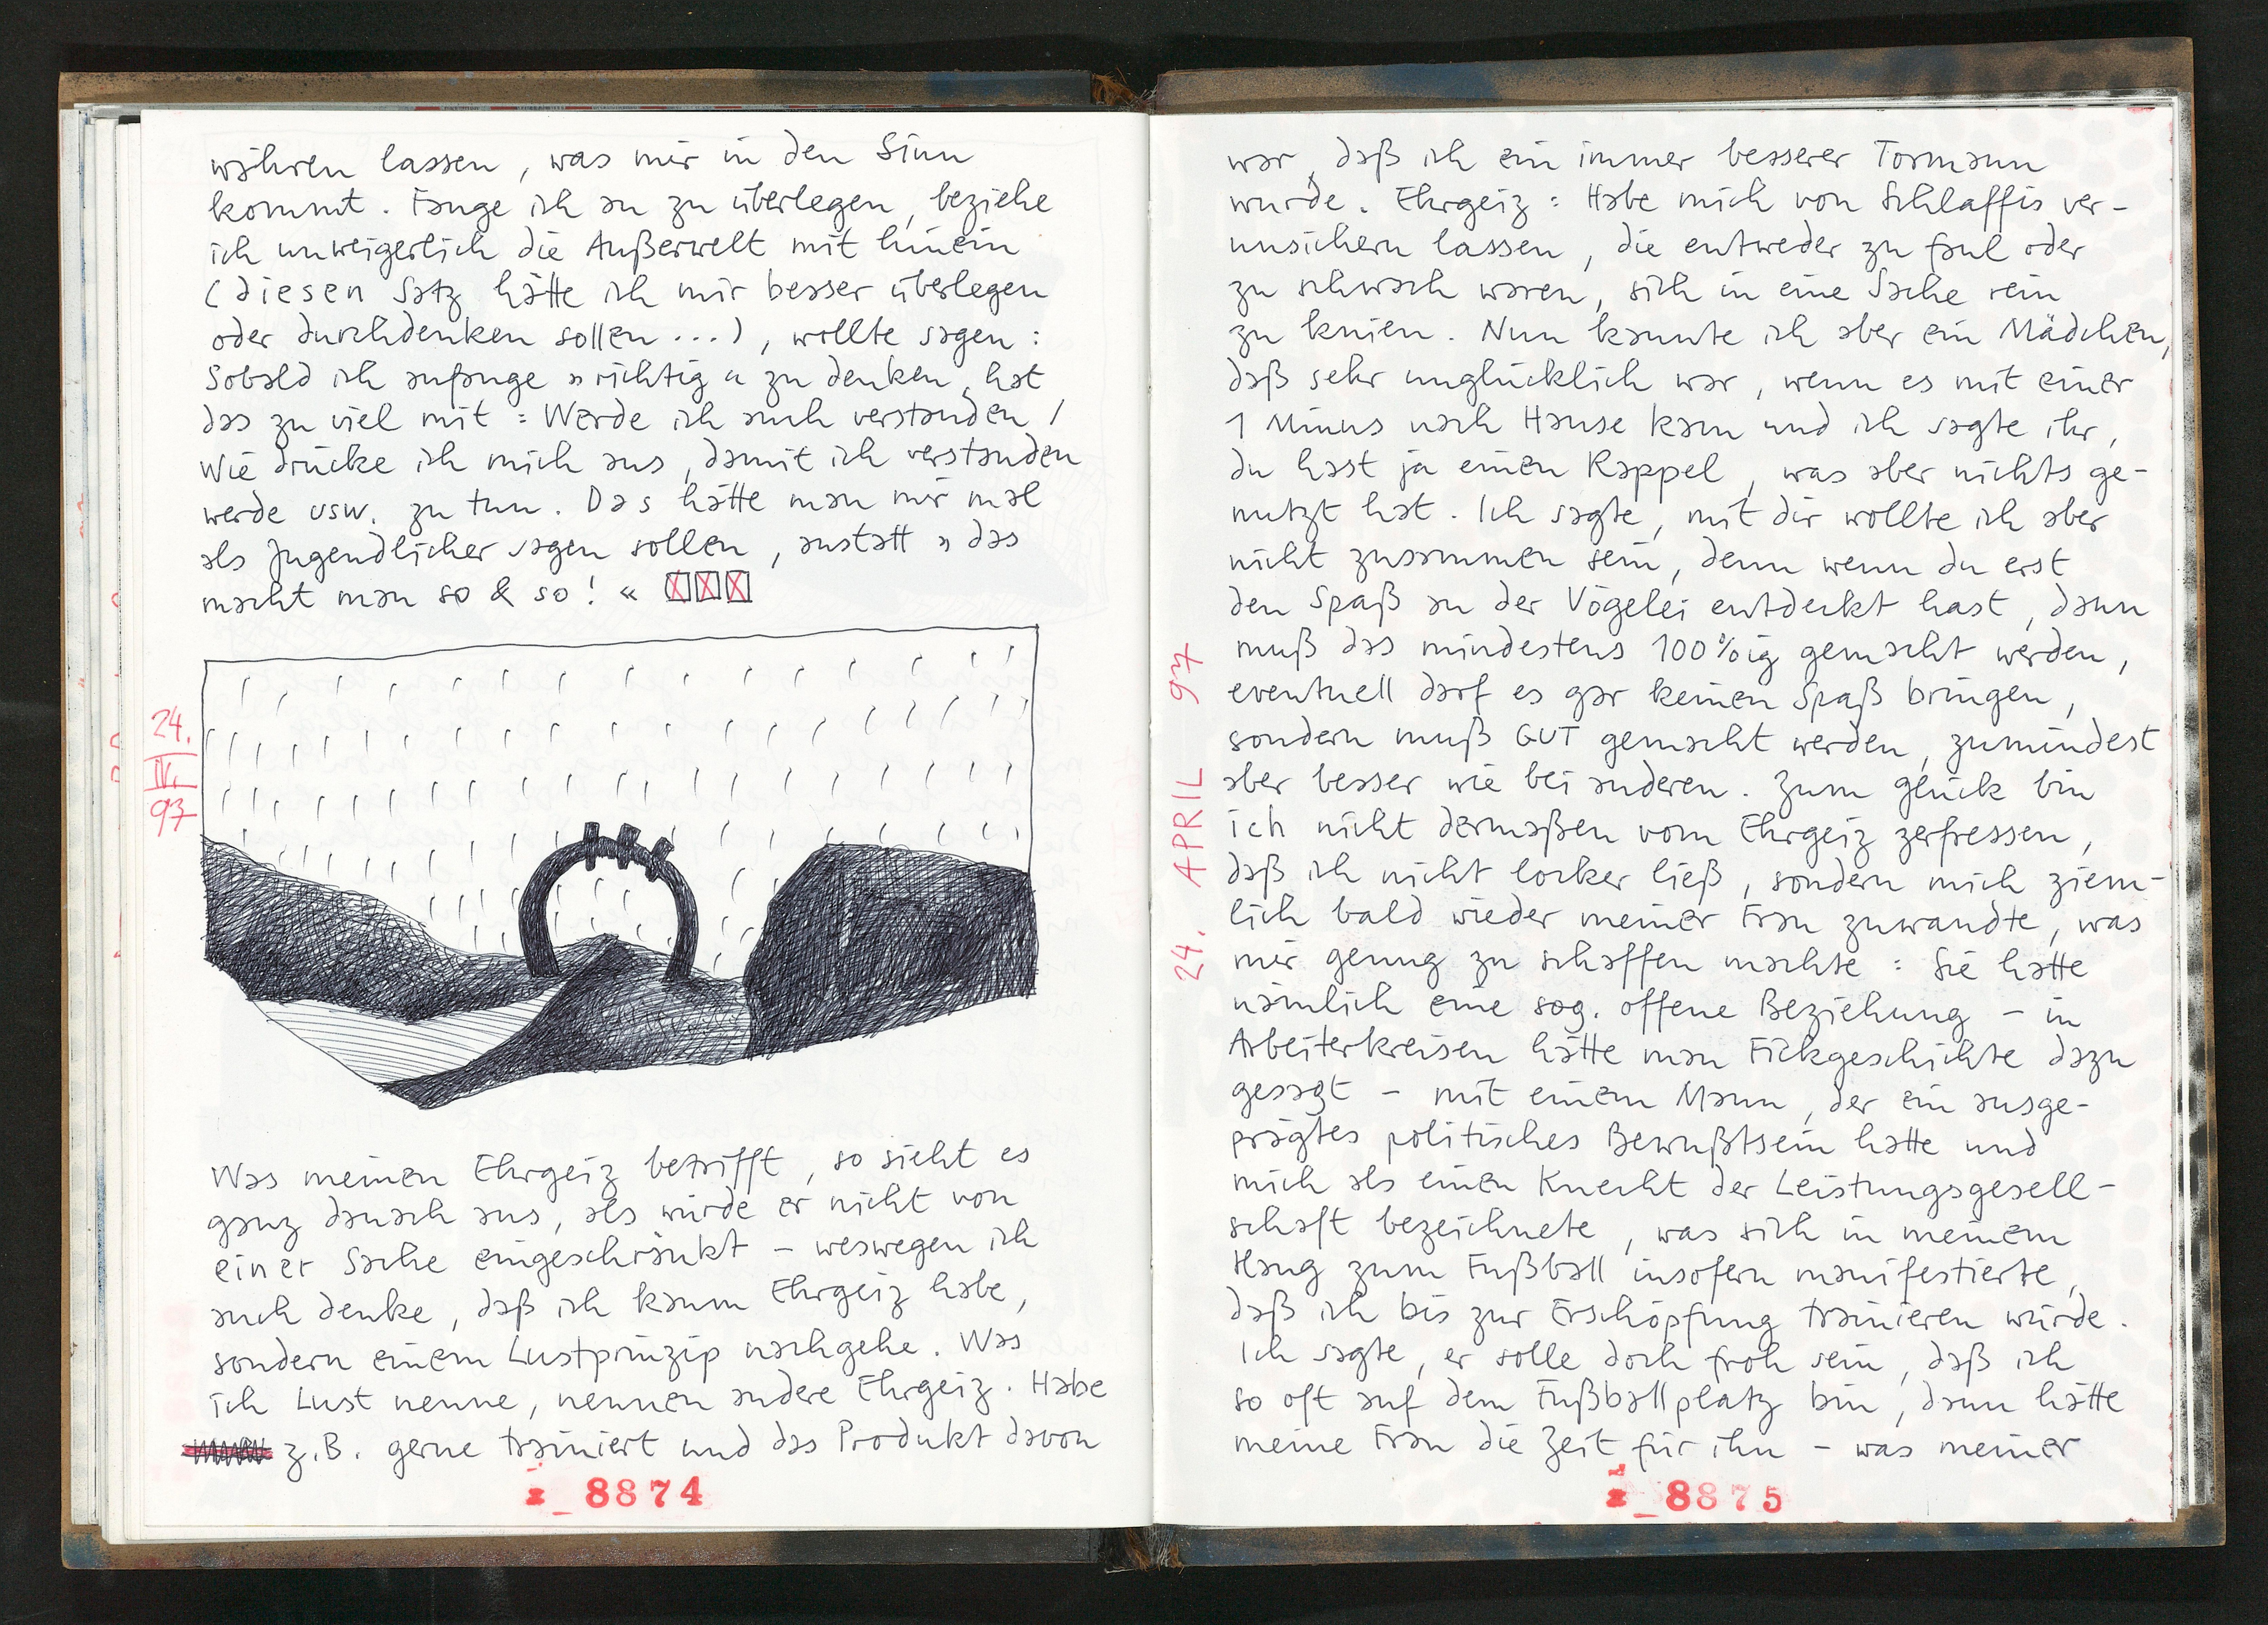 währen lassen, was mir in den Sinn
kommt. Fange ich an zu überlegen, beziehe
ich unweigerlich die Außerwelt mit hinein
(diesen Satz hätte ich mir besser überlegen
oder durchdenken sollen...), wollte sagen:
Sobald ich anfange »richtig« zu denken, hat
das zu viel mit: Werde ich auch verstanden /
Wie drücke ich mich aus, damit ich verstanden
werde usw. zu tun. Das hätte man mir mal
als Jugendlicher sagen sollen, anstatt »das
macht man so & so!«
24.
IV.
97
Was meinen Ehrgeiz betrifft, so sieht es
ganz danach aus, als würde er nicht von
einer Sache eingeschränkt – weswegen ich
auch denke, daß ich kaum Ehrgeiz habe,
sondern einem Lustprinzip nachgehe. Was
ich Lust nenne, nennen andere Ehrgeiz. Habe
z.B. gerne trainiert und das Produkt davon
8874
war, daß ich ein immer besserer Tormann
wurde. Ehrgeiz: Habe mich von Schlaffis ver-
unsichern lassen, die entweder zu faul oder
zu schwach waren, sich in eine Sache rein
zu knien. Nun kannte ich aber ein Mädchen,
daß sehr unglücklich war, wenn es mit einer
1 Minus nach Hause kam und ich sagte ihr,
du hast ja einen Rappel, was aber nichts ge-
nutzt hat. Ich sagte, mit dir wollte ich aber
nicht zusammen sein, denn wenn du erst
den Spaß an der Vögelei entdeckt hast, dann
muß das mindestens 100%ig gemacht werden,
eventuell darf es gar keinen Spaß bringen,
sondern muß GUT gemacht werden, zumindest
aber besser wie bei anderen. Zum glück bin
ich nicht dermaßen vom Ehrgeiz zerfressen,
daß ich nicht locker ließ, sondern mich ziem-
lich bald wieder meiner Frau zuwandte, was
mir genug zu schaffen machte: Sie hatte
nämlich eine sog. offene Beziehung – in
Arbeiterkreisen hätte man Fickgeschichte dazu
gesagt – mit einem Mann, der ein ausge-
prägtes politisches Bewußtsein hatte und
mich als einen Knecht der Leistungsgesell-
schaft bezeichnete, was sich in meinem
Hang zum Fußball insofern manifestierte,
daß ich bis zur Erschöpfung trainieren würde.
Ich sagte, er solle doch froh sein, daß ich
so oft auf dem Fußballplatz bin, dann hätte
meine Frau die Zeit für ihn – was meiner
24. APRIL 97
8875